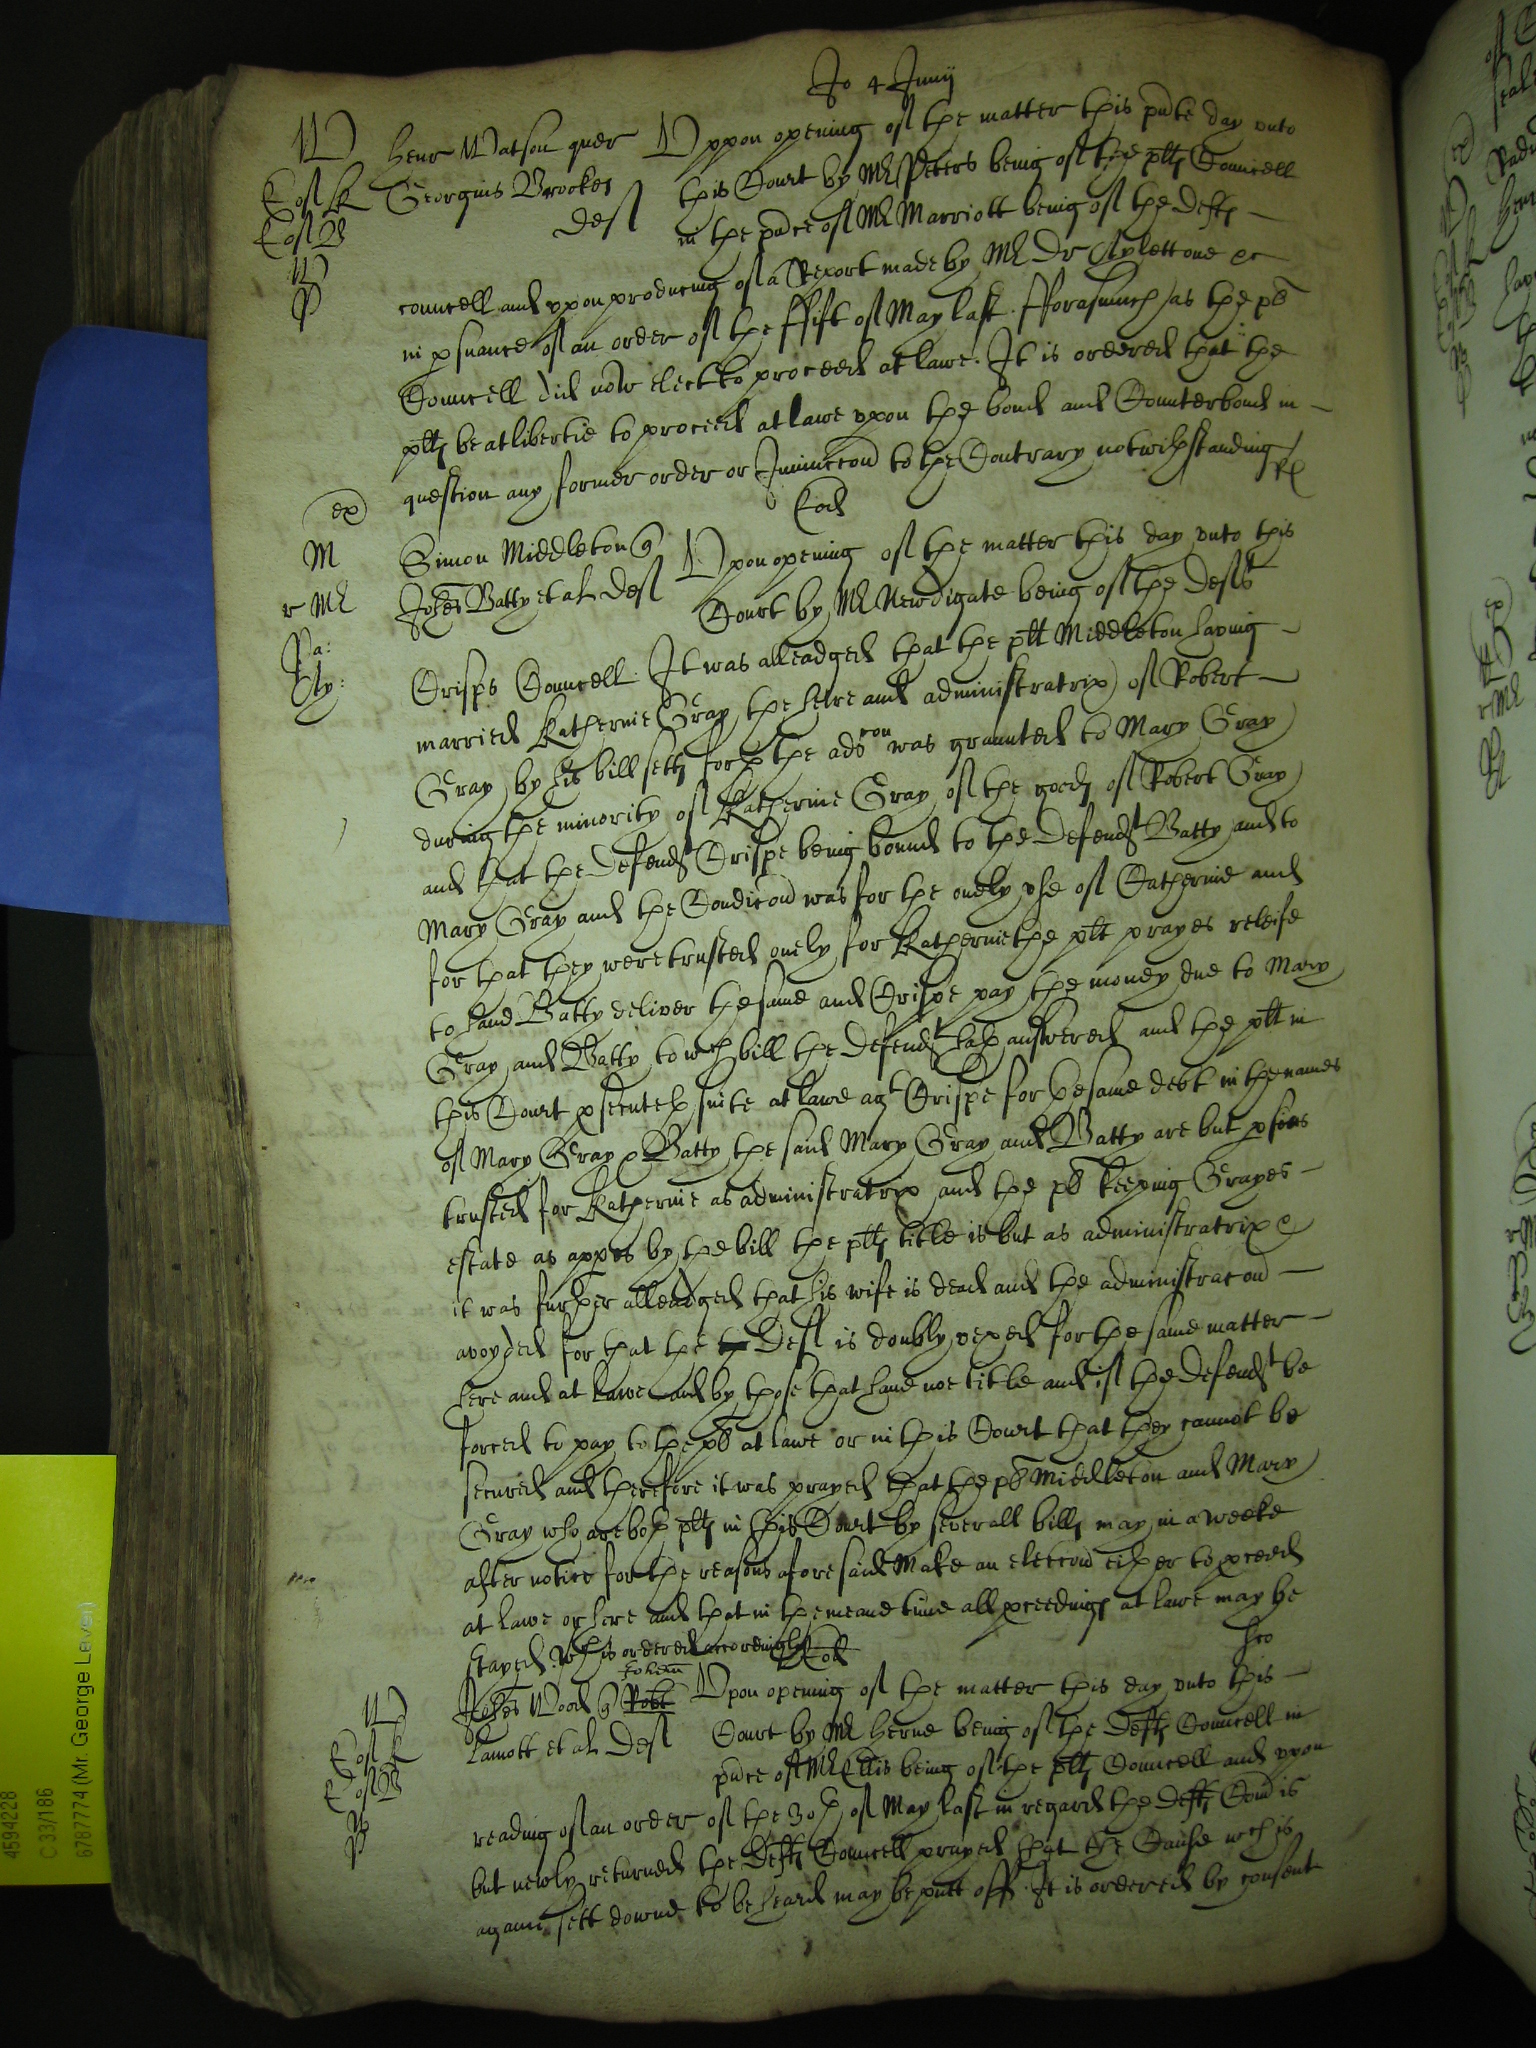 Jo 4 Junij
W
Henr Watson quer Uppon opening of the matter this pnte day unto
Georgius Brookes this Court by Mr Peters being of the plts Councell
def in the pnce of Mr Marriott being of the defts
councell and uppon producing of a Report made by Mr Dr Aylett one &c
in psuance of an order of the ffift of May last. fforasmuch as the pls
Councell did now elect to proceed at lawe. It is ordered that the
plts be at libertie to proceed at lawe upon the bond and Counterbond in
question any former order or Iniunccon to the Contrary notwithstanding
ex
M
Simon Middleton q Upon opening of the matter this day unto this
r Mr
Johes Batty et al def Court by Mr Newdigate being of the defts
Ra:
Crisps Councell. It was alleadged that the plt Middleton having
married Katherine Gray the heire and administratrix of Robert
Gray by his bill setts forth the adcon was graunted to Mary Gray
during the minority of Katherine Gray of the goods of Robert Gray
and that the defendt Crispe being bound to the defendt Batty and to
Mary Gray and the Condicon was for the onely use of Catherine and
for that they were trusted onely for Katherine the plt prayes releife
to have Batty deliver the same and Crispe pay the money due to Mary
Gray and Batty to wch bill the defendt hath answered and the plt in
this Court psecuteth suite at lawe agt Crispe for the same debt in the names
of Mary Gray & Batty the said Mary Gray and Batty are but psons
trusted for Katherine as administratrix and the pl keeping Grayes
estate as appes by the bill the plts title is but as administratrix &
it was further alleadged that his wife is dead and the administracon
avoyded for that the deft is doubly vexed for the same matter
here and at lawe and by those that have noe title and if the defendt be
forced to pay to the pl at lawe or in this Court that they cannot be
secured and therefore it was prayed that the pl Middleton and Mary
Gray who are both plts in this Court by severall bills may in a weeke
after notice for the reasons aforesaid make an eleccon either to pceed
at lawe or here and that in the meane time all pceedings at lawe may be
stayed. Wch is ordered accordingly
W
Johem
Johes Wood q Robt Upon opening of the matter this day unto this
Lamott et al def Court by Mr Herne being of the defts Councell in
pnce of Mr Ellis being of the plts Councell and uppon
reading of an order of the 30th of May last in regard the defts Comn is
but newly returned the defts Councell prayed that the Cause wch is
againe sett downe to be heard may be putt off. It is ordered by consent
4594228
C 33/186
6787774 (Mr. George Lever)